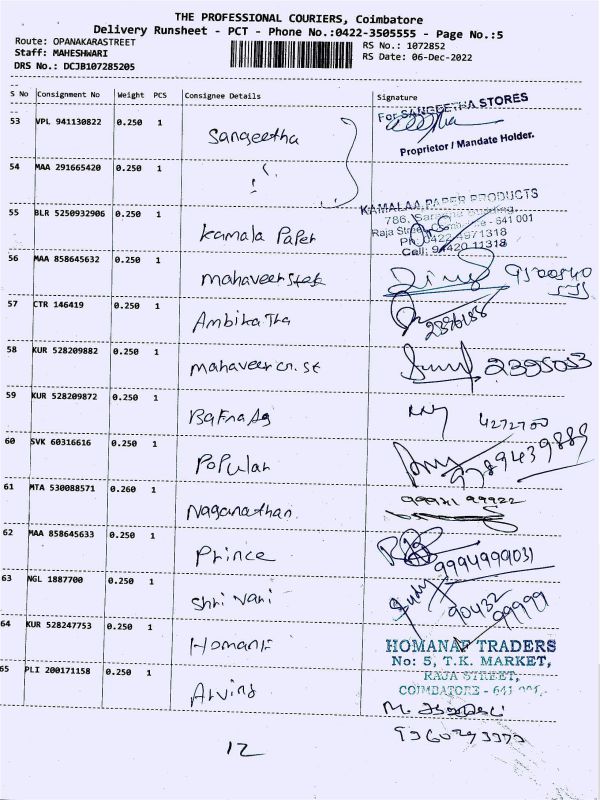 THE PROFESSIONAL COURIERS, Coimbatore
Delivery Runsheet - PCT - Phone No.:0422-3505555 - Page No.:5
Route: OPANAKARASTREET
RS No.: 1072852
Staff: MAHESHWARI
RS Date: 06-Dec-2022
DRS No.: DCJB107285205
S No Consignment No Weight PCS Consignee Details Signature
For SANGEETHA STORES
53 VPL 941130822 0.250 1 Sangeetha
Proprietor / Mandate Holder.
54 MAA 291665420 0.250 1
KAMALAA PAPER PRODUCTS
55 BLR 5250932906 0.250 1 Kamala Paper
786,
Raja Street, - 641 001
Ph: 0422 4971318
Cell: 94420 11318
56 MAA 858645632 0.250 1
57 CTR 146419 0.250 1 Ambika Tha
2396188
58 KUR 528209882 0.250 1 mahaveer cn. st 2395053
59 KUR 528209872 0.250 1 Bafna Ag 4272700
60 SVK 60316616 0.250 1 Popular 9789439889
61 MTA 530088571 0.260 1 Naganathan 99921 99922
62 MAA 858645633 0.250 1 Prince 9994999031
63 NGL 1887700 0.250 1 Shri Vari 90432 99999
64 KUR 528247753 0.250 1
HOMANAF TRADERS
No: 5, T.K. MARKET,
65 PLI 200171158 0.250 1 Arving
RAJA STREET,
COIMBATORE - 641 001.
12